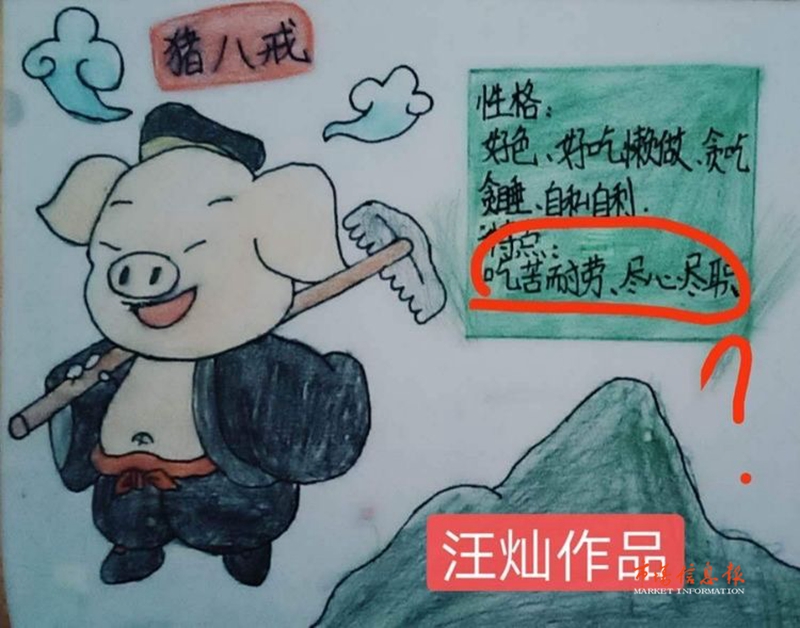 猪八戒
性格：
好色、好吃懒做、贪吃
贪睡、自私自利.
特点：
吃苦耐劳、尽心尽职
?
汪灿作品
市场信息报
MARKET INFORMATION